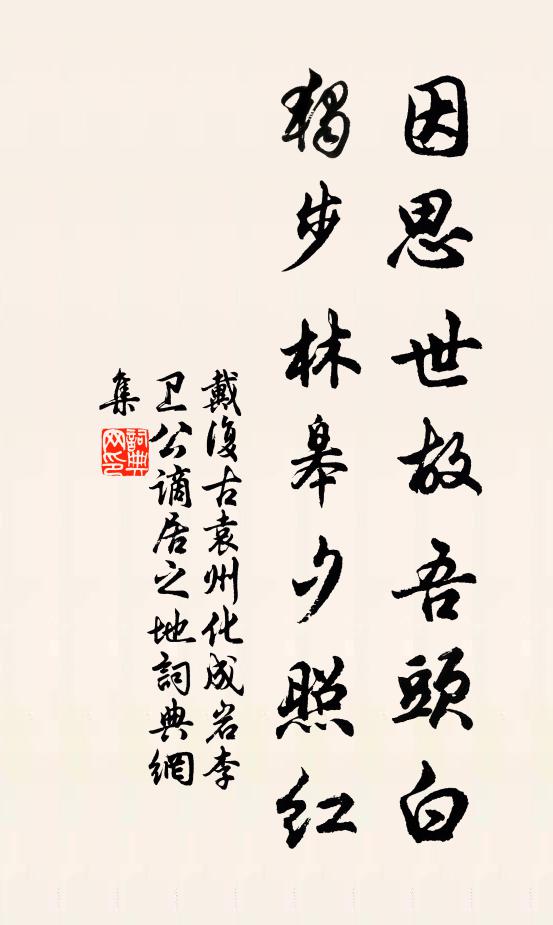 因思世故吾頭白
獨步林皋夕照红
戴復古袁州化成岩李
卫公谪居之地詞典網
集
詞典
网印